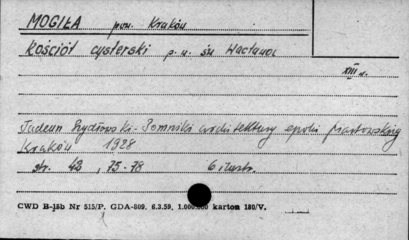 MOGIŁA pow. Kraków
Kościół cysterski p. w. św Wacława
XIII w.
Tadeusz Szydłowski - Pomniki architektury epoki piastowskiej
Kraków 1928
str. 43, 75-78 6 ilustr.
CWD B-15b Nr 515/P. GDA-809. 6.3.59, 1.000.000 karton 180/V.